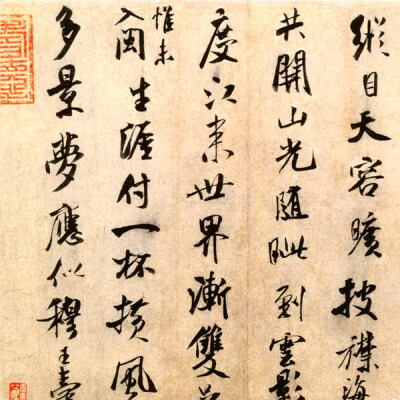 縱目天容曠披襟海
共開山光随眦到雲影
度江来世界漸雙
惟未
入閩生涯付一杯横風
多景夢應似穆王